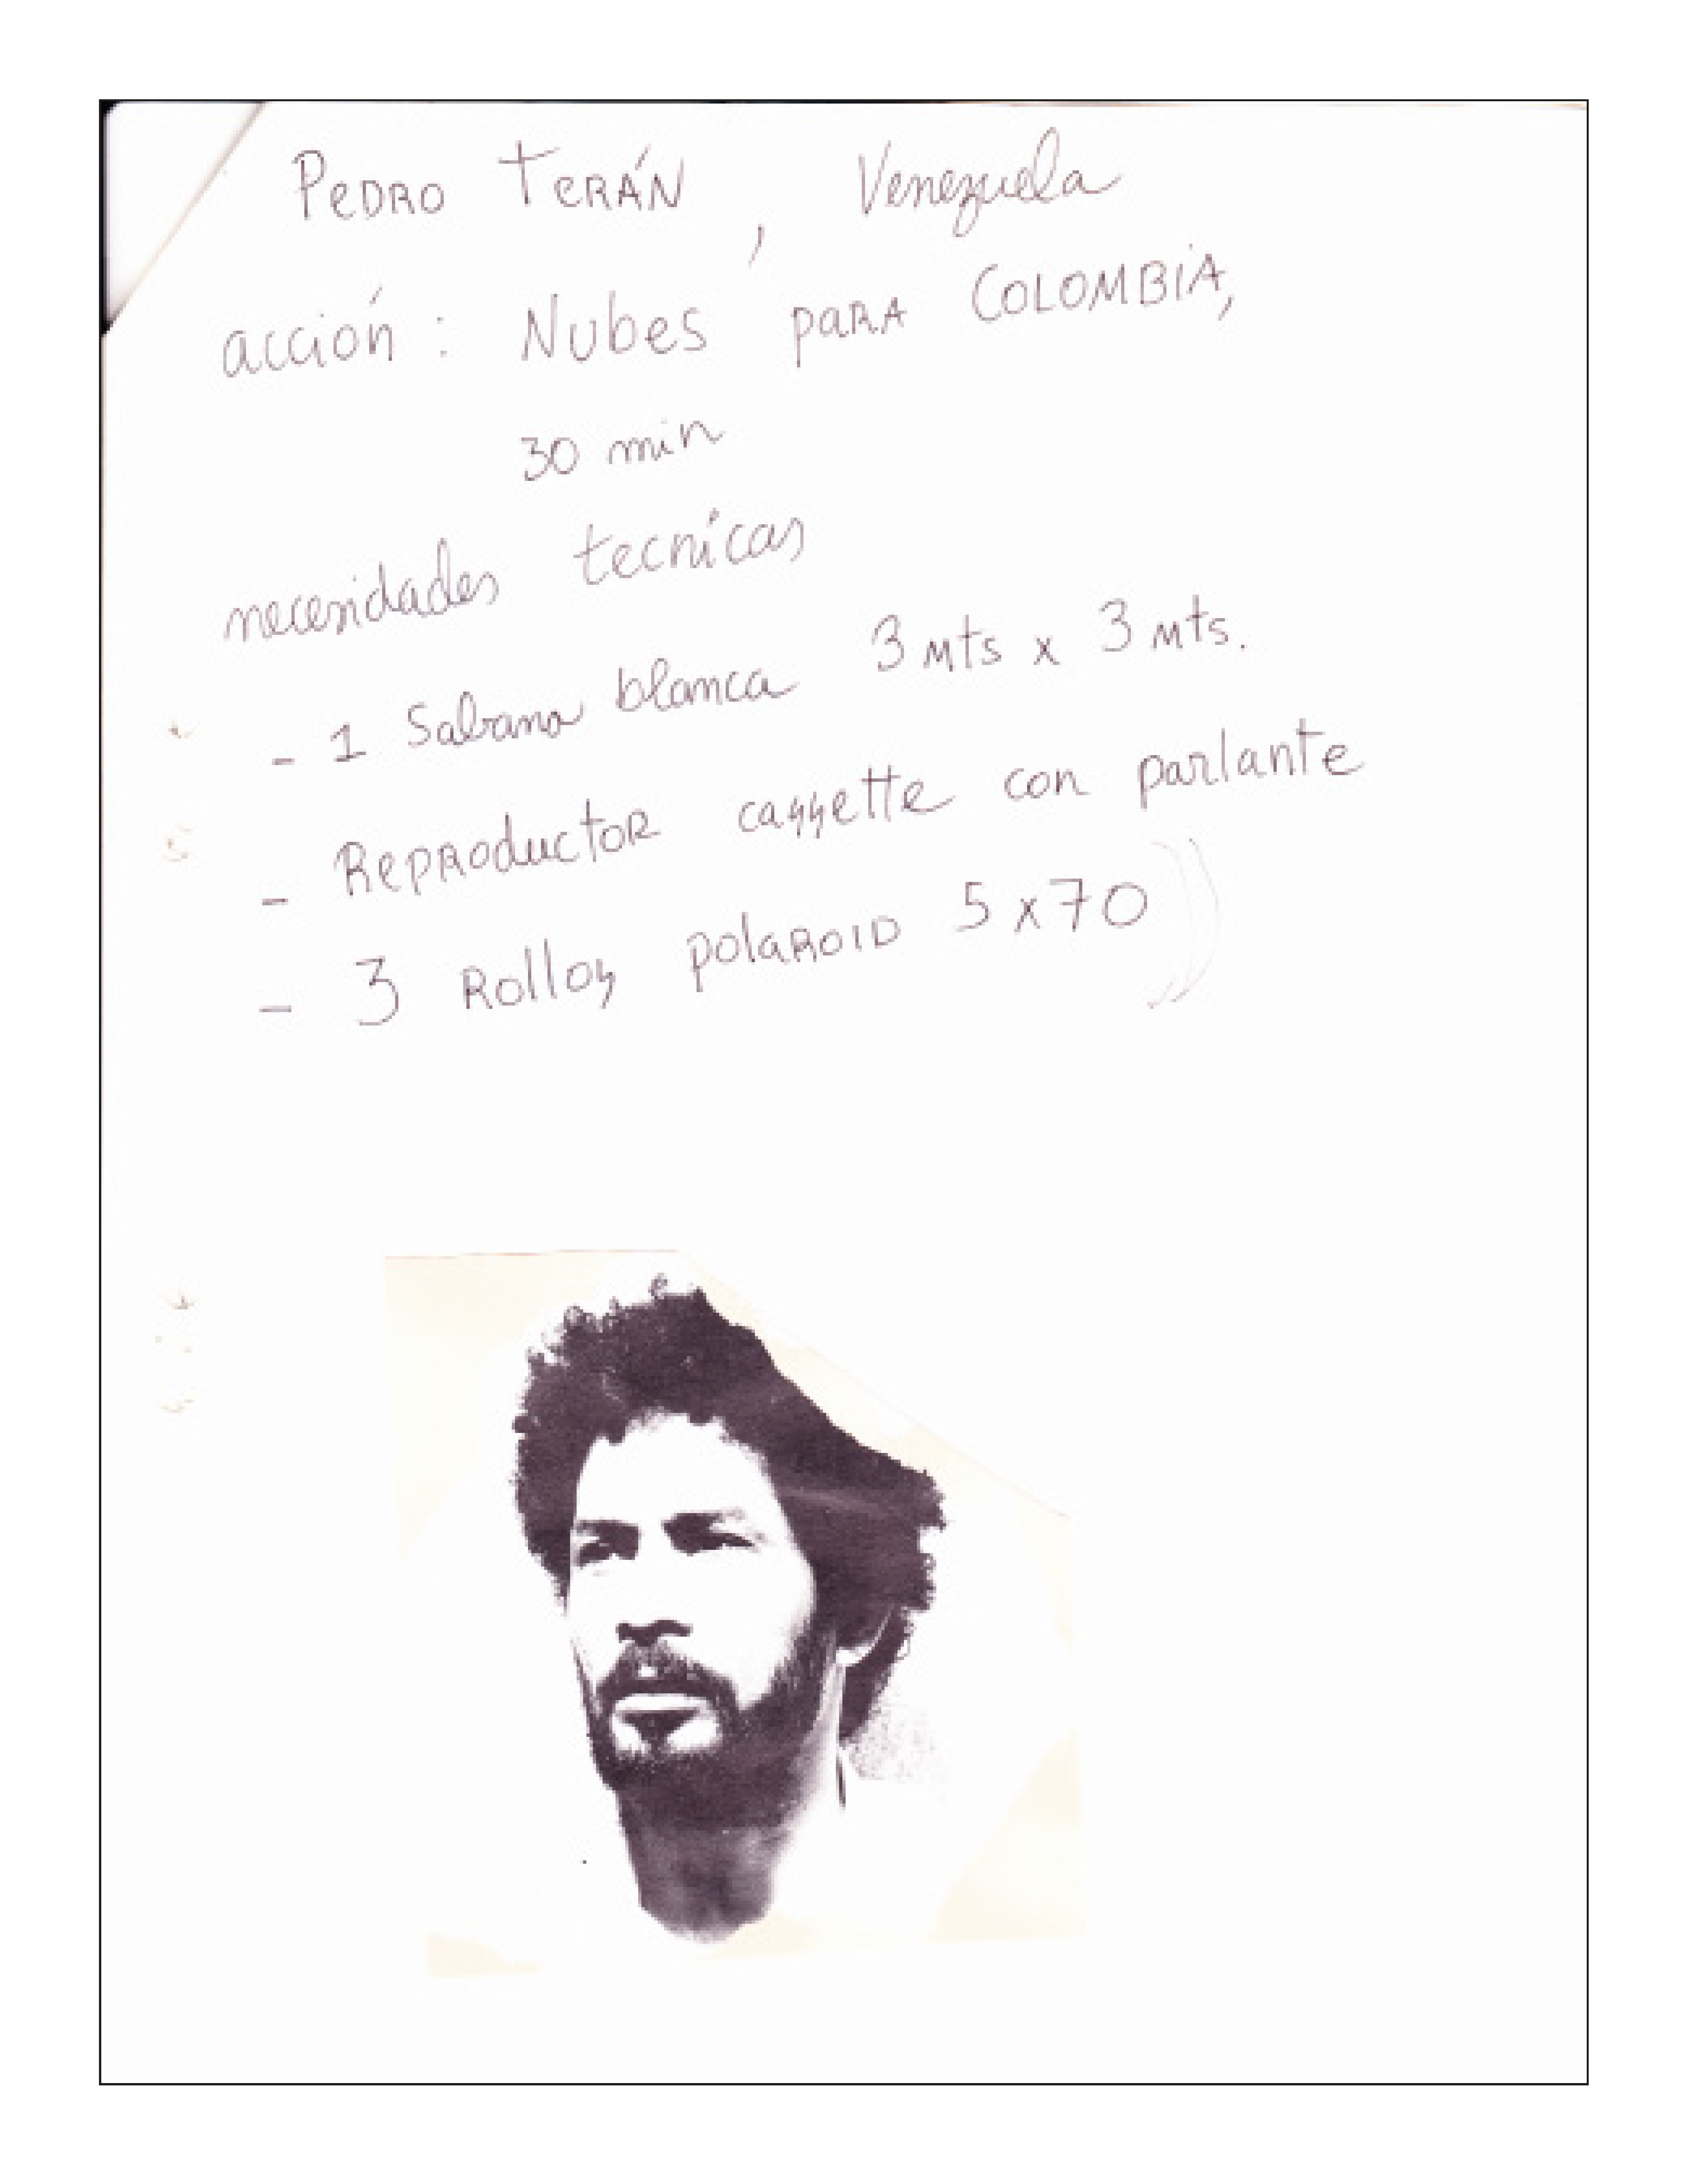 PeDRO TeRÁN, Venezuela
acción: Nubes paRA COLOMBiA,
30 min
necesidades tecnícas
- 1 Sabana blanca 3 Mts x 3 Mts.
- RepRoductoR cassette con parlante
- 3 Rollos polaROID 5x70